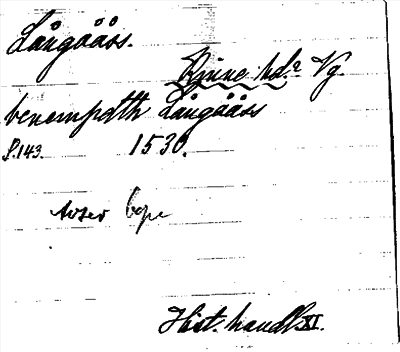 Långååss.
Kinne hd. Vg.
benempdth Långååss
S.143. 1530.
avser
Hist. handl. XI.